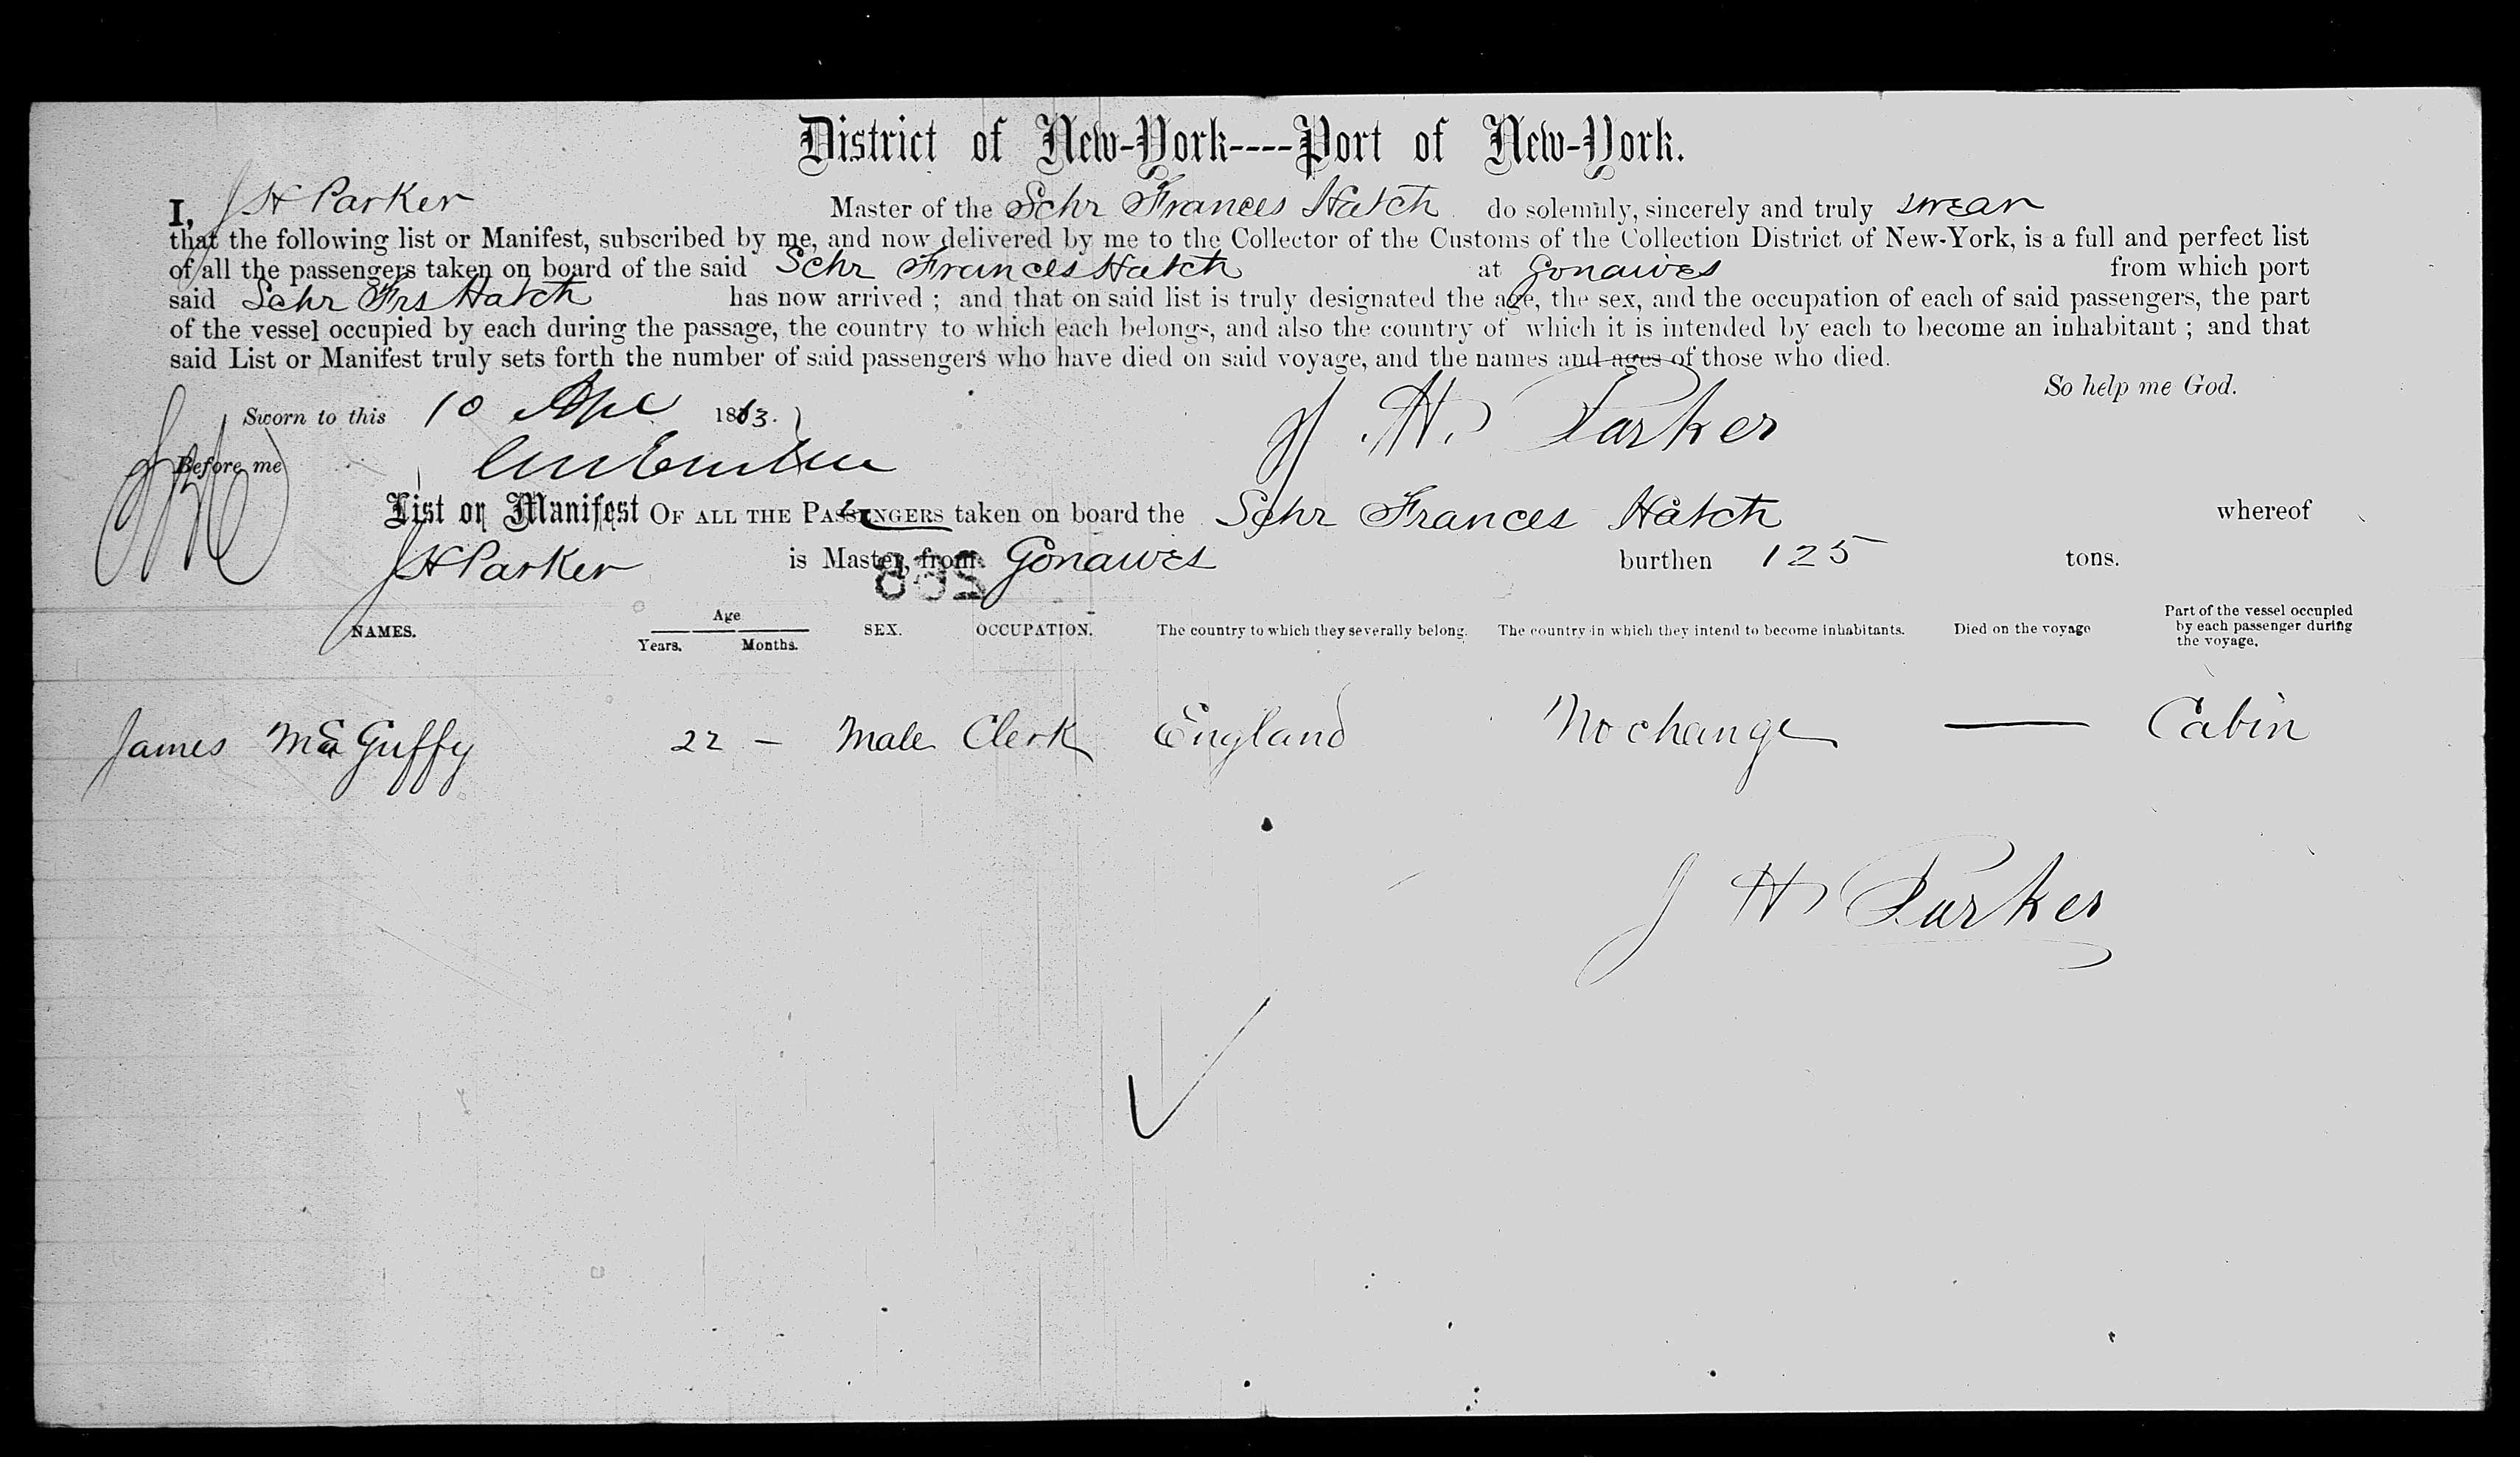 District of New-York----Port of New-York.
I, J H Parker Master of the Schr Frances Hatch do solemnly, sincerely and truly swear
that the following list or Manifest, subscribed by me, and now delivered by me to the Collector of the Customs of the Collection District of New-York, is a full and perfect list
of all the passengers taken on board of the said Schr Frances Hatch at Gonaives from which port
said Schr Frs Hatch has now arrived ; and that on said list is truly designated the age, the sex, and the occupation of each of said passengers, the part
of the vessel occupied by each during the passage, the country to which each belongs, and also the country of which it is intended by each to become an inhabitant ; and that
said List or Manifest truly sets forth the number of said passengers who have died on said voyage, and the names and ages of those who died.
So help me God.
Sworn to this 10 Apl 1863. J. H. Parker
Before me
List or Manifest OF ALL THE PASSENGERS taken on board the Schr Frances Hatch whereof
J H Parker is Master, from Gonaives burthen 125 tons.
NAMES. Age Years. Months. SEX. OCCUPATION. The country to which they severally belong. The country in which they intend to become inhabitants. Died on the voyage Part of the vessel occupied by each passenger during the voyage.
James Mc Guffy 22 — Male Clerk England No change — Cabin
J H Parker